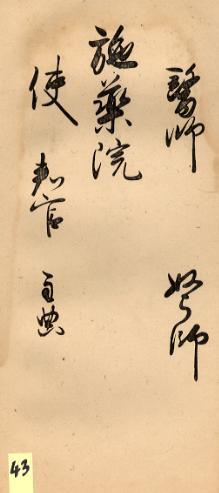 醫師 弩師
施藥院
使 判官 主典
43